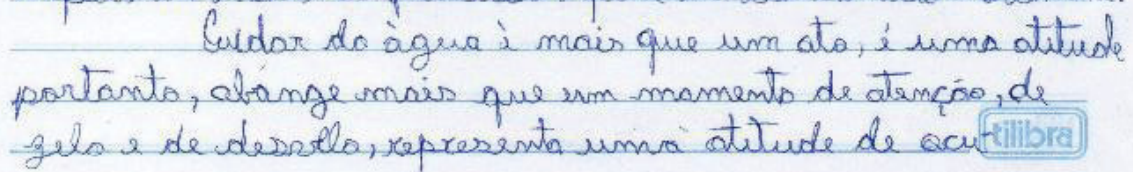 Cuidar da água è mais que um ato, é uma atitude
portanto, abánge mais que um momento de atenção, de
zelo e de desvelo, representa uma atitude de ocu-
tilibra